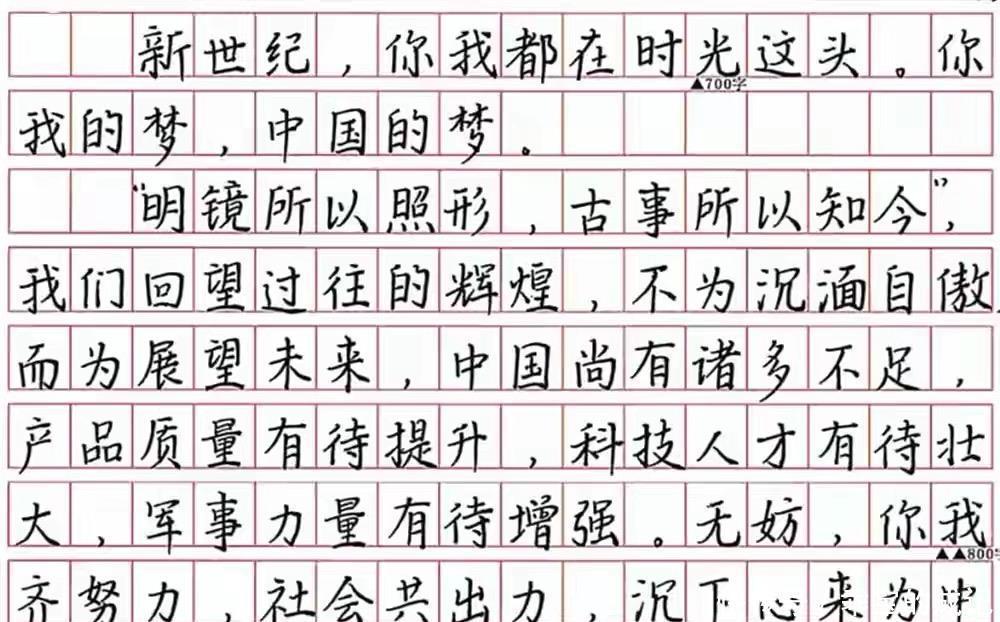 新世纪，你我都在时光这头。你
▲700字
我的梦，中国的梦。
“明镜所以照形，古事所以知今”，
我们回望过往的辉煌，不为沉湎自傲，
而为展望未来，中国尚有诸多不足，
产品质量有待提升，科技人才有待壮
大，军事力量有待增强。无妨，你我
▲▲800字
齐努力，社会共出力，沉下心来为中